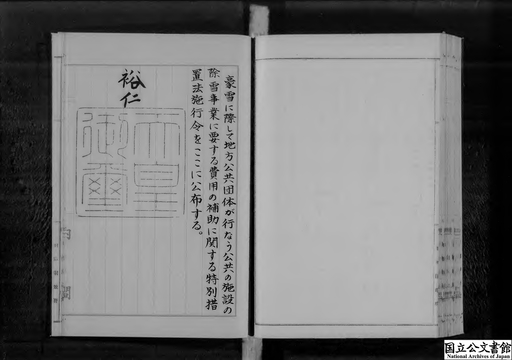 豪雪に際して地方公共団体が行なう公共の施設の
除雪事業に要する費用の補助に関する特別措
置法施行令をここに公布する。
裕仁
天皇
御璽
国立公文書館
National Archives of Japan